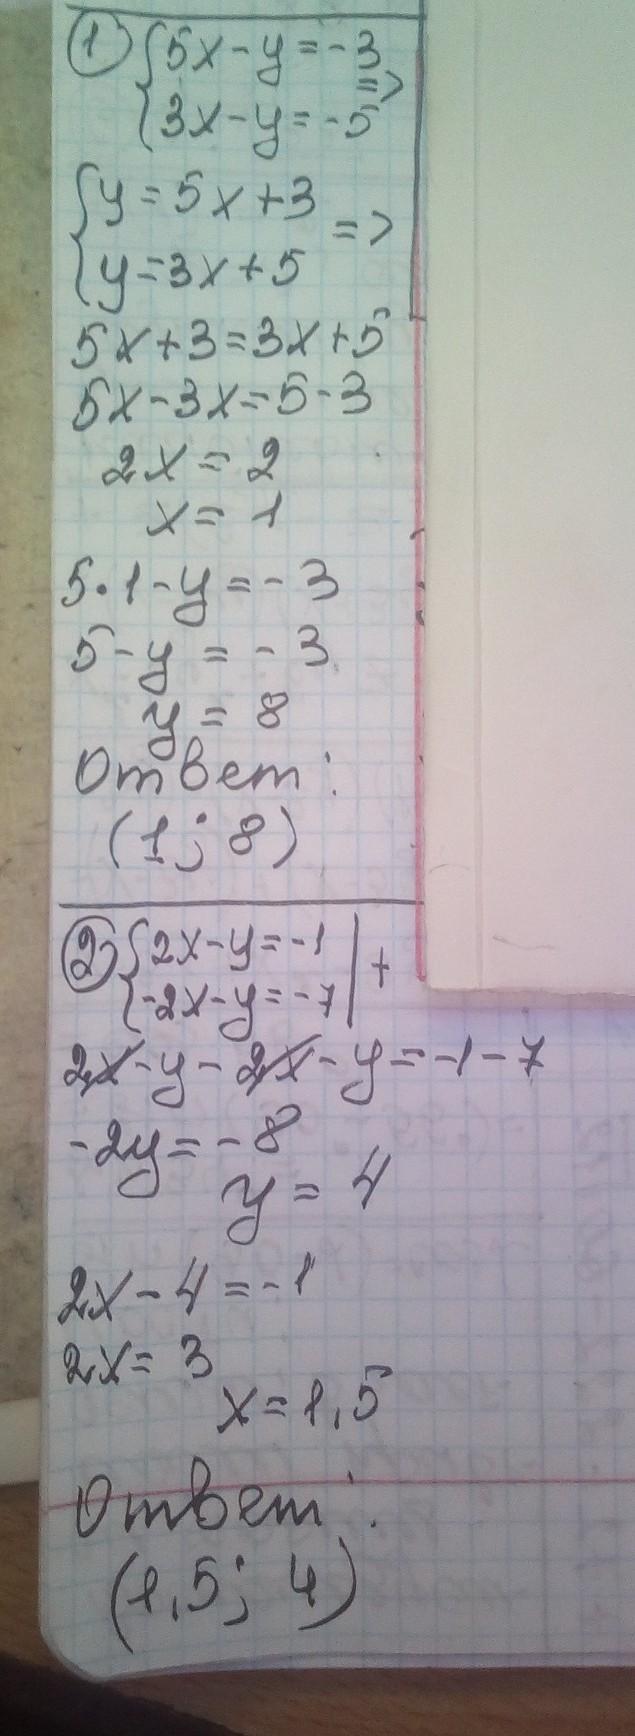 1 { 5x-y=-3
3x-y=-5 =>
{ y=5x+3
y=3x+5 =>
5x+3=3x+5
5x-3x=5-3
2x=2
x=1
5·1-y=-3
5-y=-3
y=8
Ответ:
(1; 8)
2 { 2x-y=-1
-2x-y=-7 | +
2x-y-2x-y=-1-7
-2y=-8
y=4
2x-4=-1
2x=3
x=1,5
Ответ:
(1,5; 4)